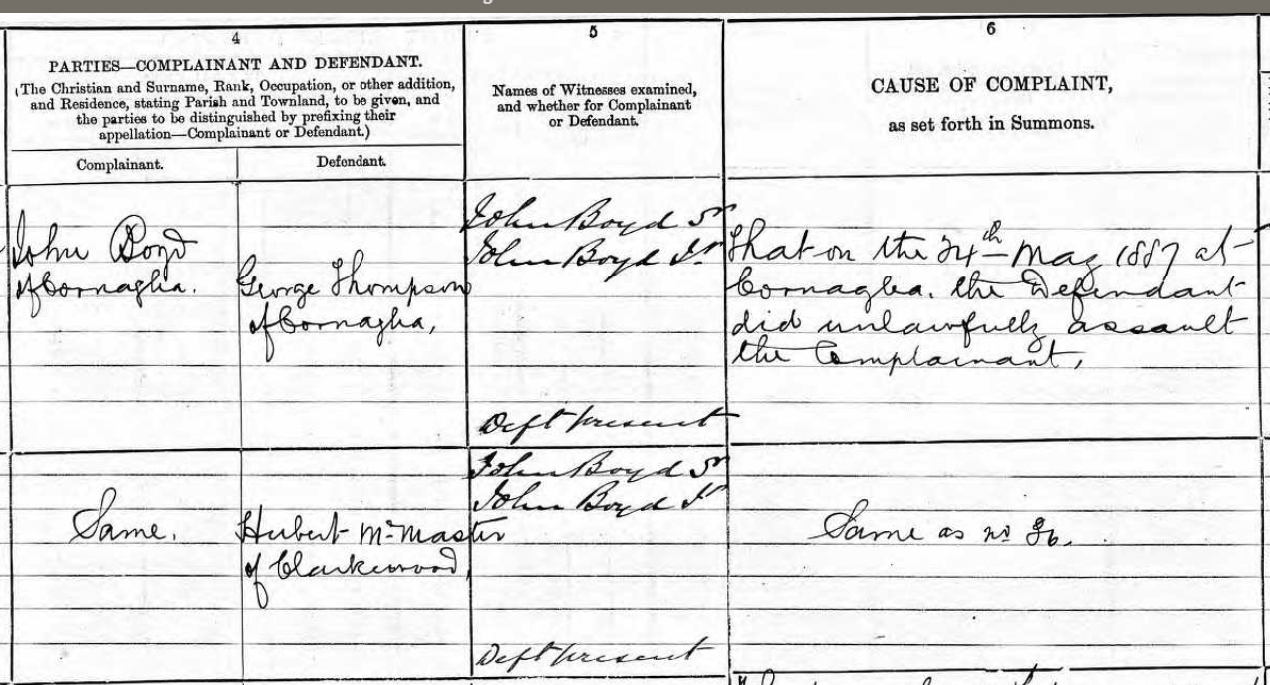 4
PARTIES—COMPLAINANT AND DEFENDANT.
(The Christian and Surname, Rank, Occupation, or other addition,
and Residence, stating Parish and Townland, to be given, and
the parties to be distinguished by prefixing their
appellation—Complainant or Defendant.)
Complainant.
Defendant.
5
Names of Witnesses examined,
and whether for Complainant
or Defendant.
6
CAUSE OF COMPLAINT,
as set forth in Summons.
John Boyd
of Cornaglea.
George Thompson
of Cornaglea,
John Boyd Sr
John Boyd Jr
Deft present
That on the 24th May 1887 at
Cornaglea. the Defendant
did unlawfully assault
the Complainant,
Same.
Hubert McMaster
of Clarkewood,
John Boyd Sr
John Boyd Jr
Deft present
Same as no